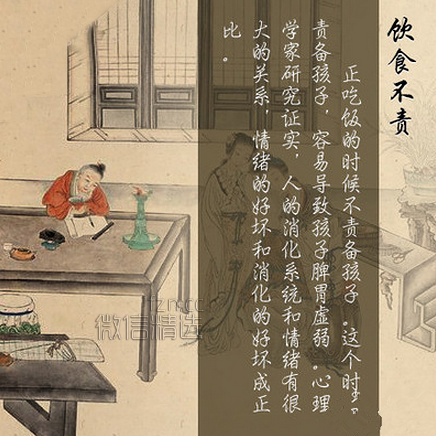 饮食不责
正吃饭的时候不责备孩子。这个时
责备孩子，容易导致孩子脾胃虚弱。心理
学家研究证实，人的消化系统和情绪有很
大的关系，情绪的好坏和消化的好坏成正
比。
微信精选